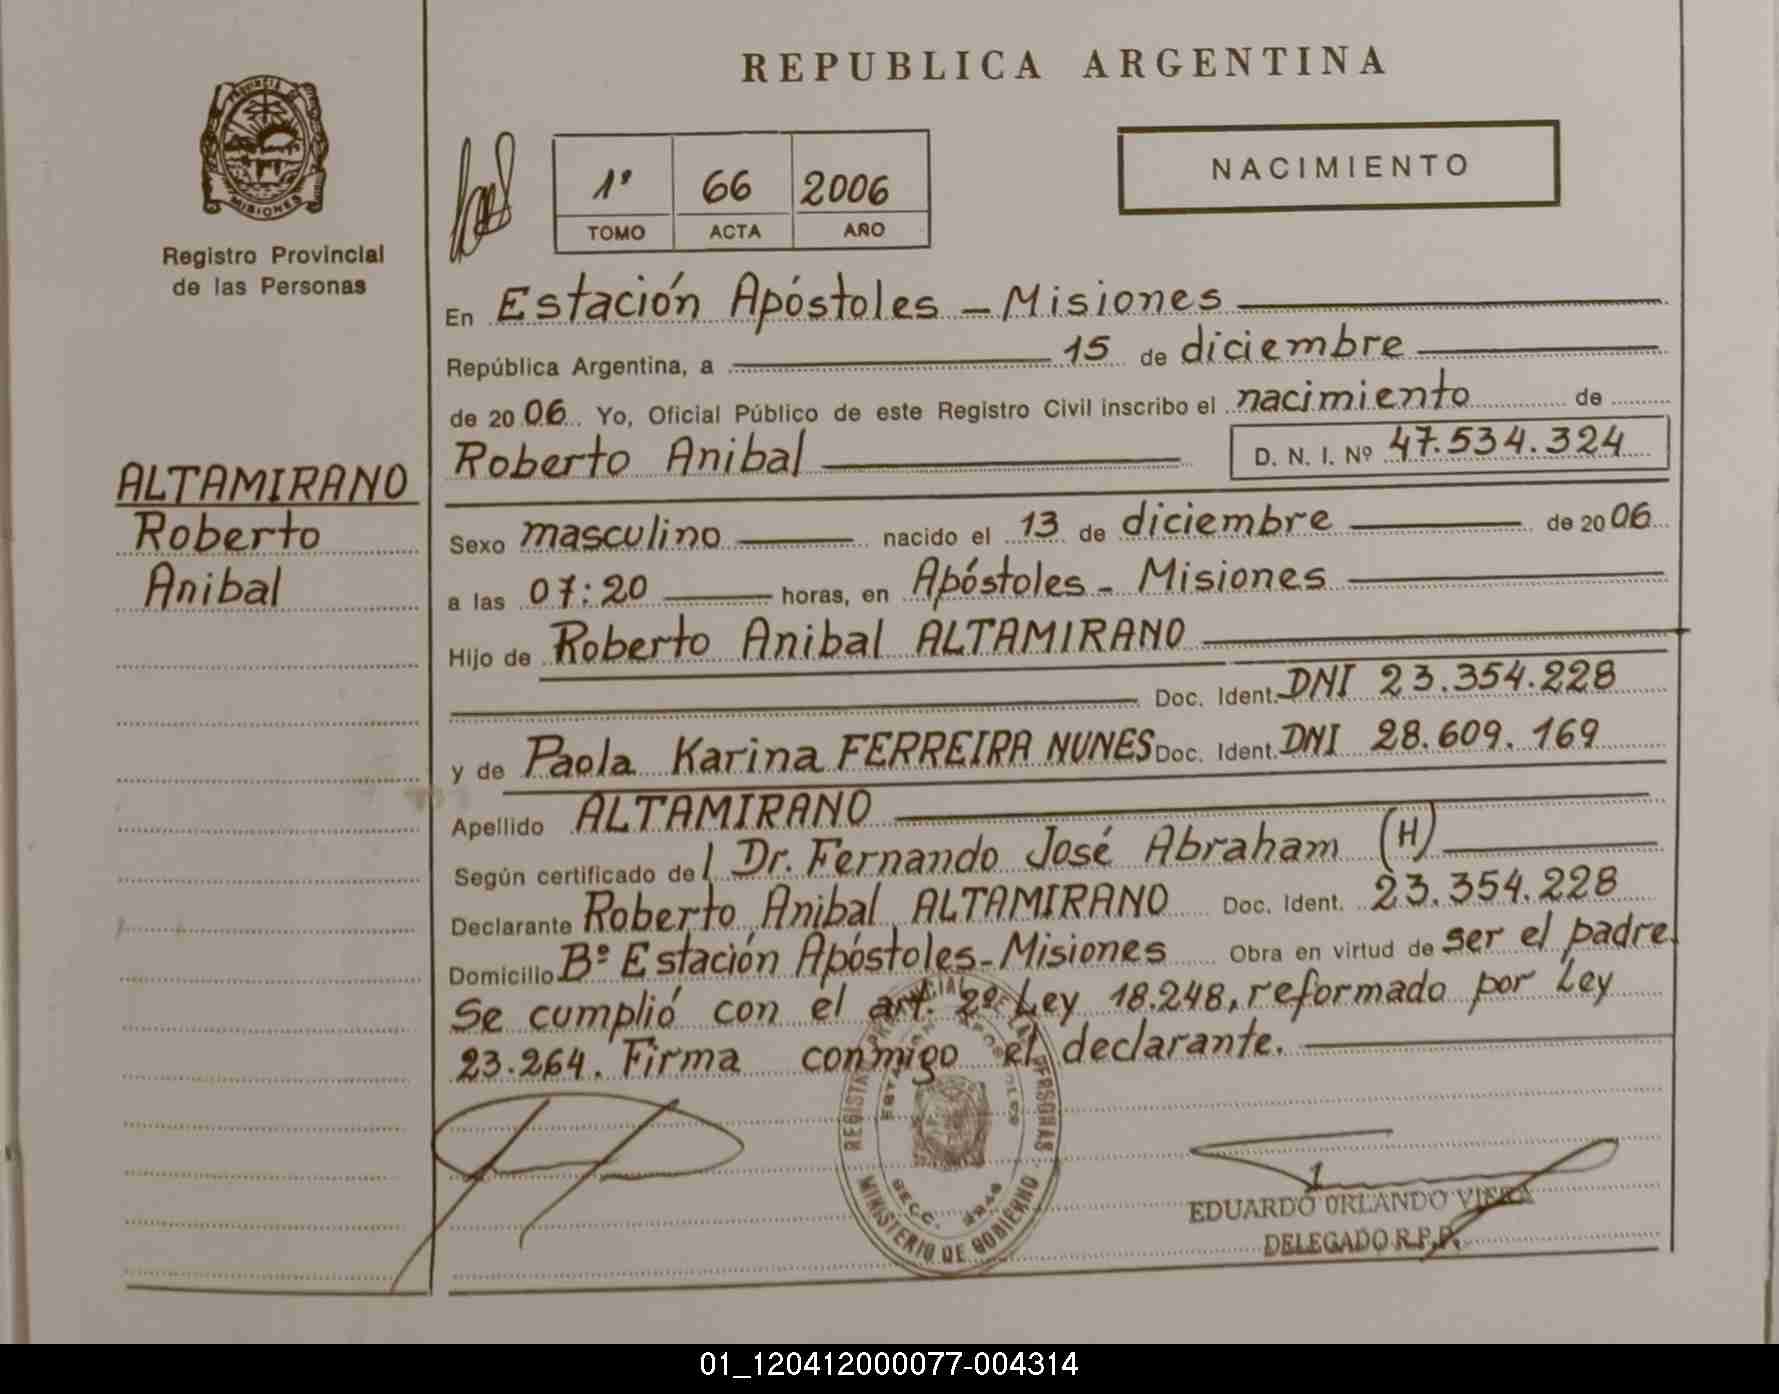 REPUBLICA ARGENTINA
PROVINCIA DE
MISIONES
Registro Provincial
de las Personas
1º 66 2006
TOMO ACTA AÑO
NACIMIENTO
En Estación Apóstoles - Misiones
República Argentina, a 15 de diciembre
de 2006 Yo, Oficial Público de este Registro Civil inscribo el nacimiento de
Roberto Anibal D. N. I. Nº 47.534.324
ALTAMIRANO
Roberto
Anibal
Sexo masculino nacido el 13 de diciembre de 2006
a las 07:20 horas, en Apóstoles - Misiones
Hijo de Roberto Anibal ALTAMIRANO
Doc. Ident. DNI 23.354.228
y de Paola Karina FERREIRA NUNES Doc. Ident. DNI 28.609.169
Apellido ALTAMIRANO
Según certificado de Dr. Fernando José Abraham (H)
Declarante Roberto Anibal ALTAMIRANO Doc. Ident. 23.354.228
Domicilio Bº Estación Apóstoles-Misiones Obra en virtud de ser el padre
Se cumplió con el art. 2º Ley 18.248, reformado por Ley
23.264. Firma conmigo el declarante.
DE LAS PERSONAS
MINISTERIO DE GOBIERNO
SECC.
EDUARDO ORLANDO VIERA
DELEGADO R.P.P.
01_120412000077-004314